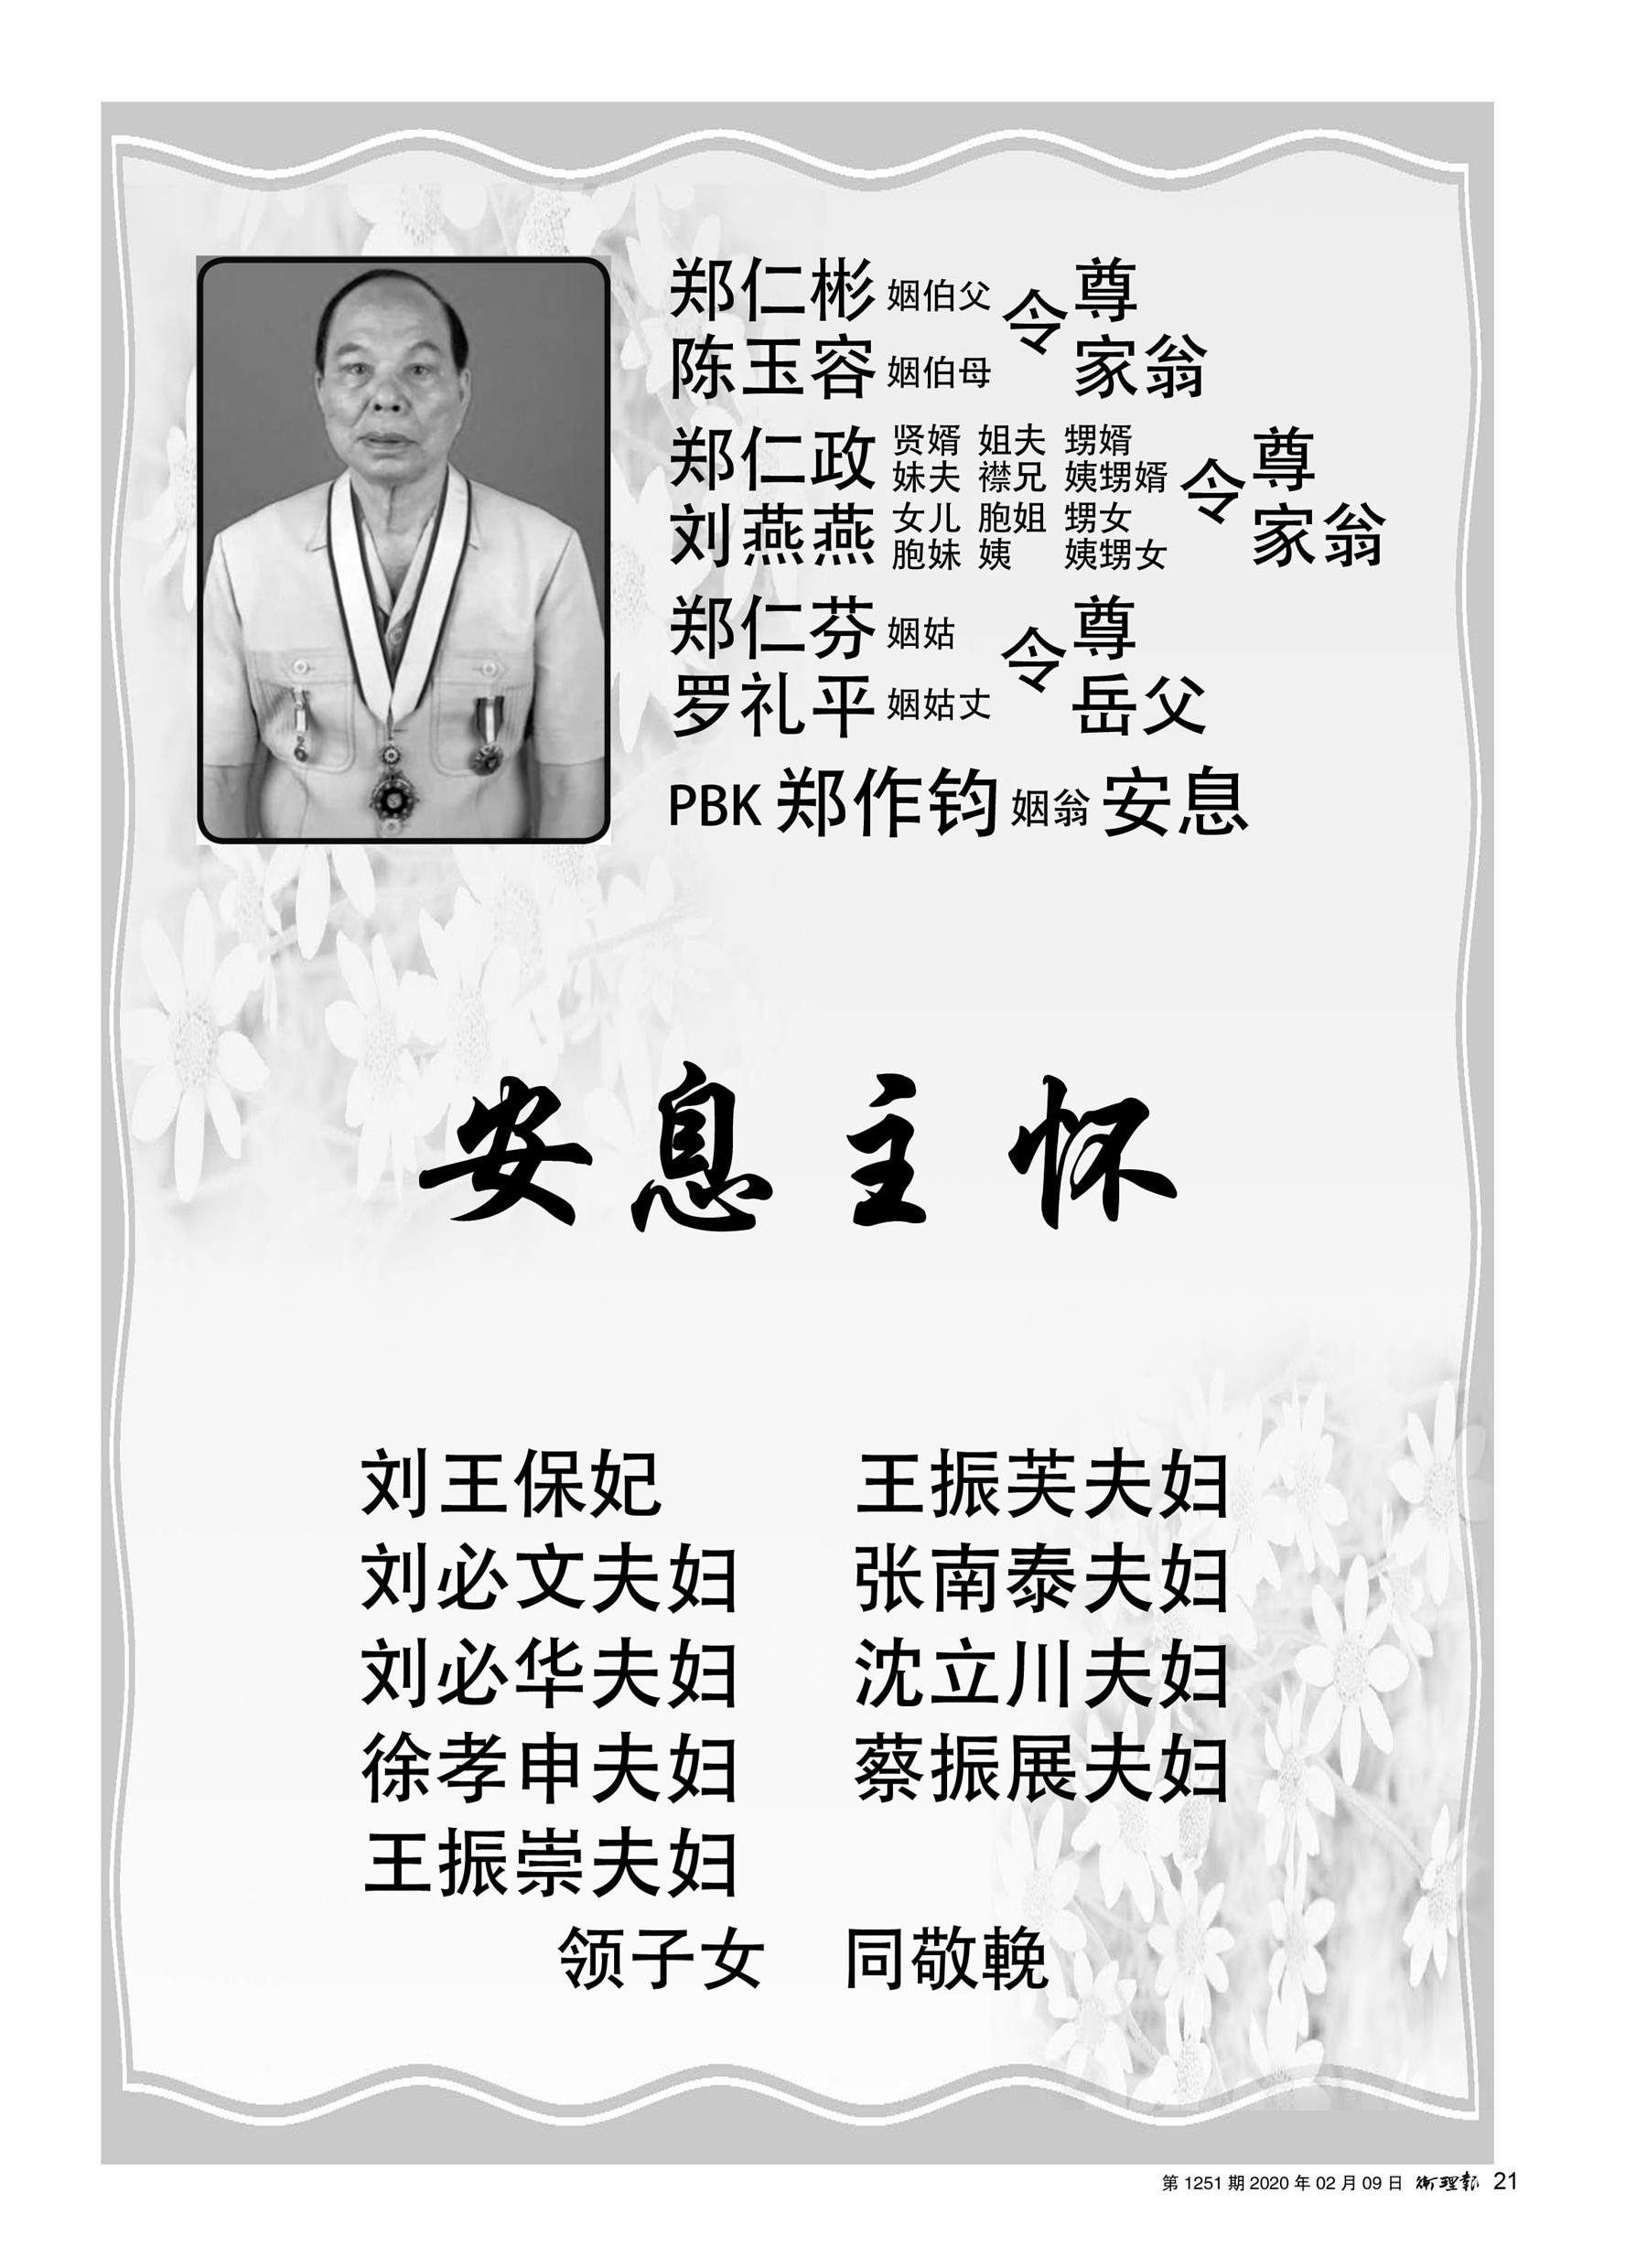 郑仁彬 姻伯父 令 尊
陈玉容 姻伯母 家翁
郑仁政 贤婿 姐夫 甥婿 令 尊
妹夫 襟兄 姨甥婿
刘燕燕 女儿 胞姐 甥女 家翁
胞妹 姨 姨甥女
郑仁芬 姻姑 令 尊
罗礼平 姻姑丈 岳父
PBK 郑作钧 姻翁 安息
安息主怀
刘王保妃 王振芙夫妇
刘必文夫妇 张南泰夫妇
刘必华夫妇 沈立川夫妇
徐孝申夫妇 蔡振展夫妇
王振崇夫妇
领子女 同敬輓
第 1251 期 2020 年 02 月 09 日 衛理報 21